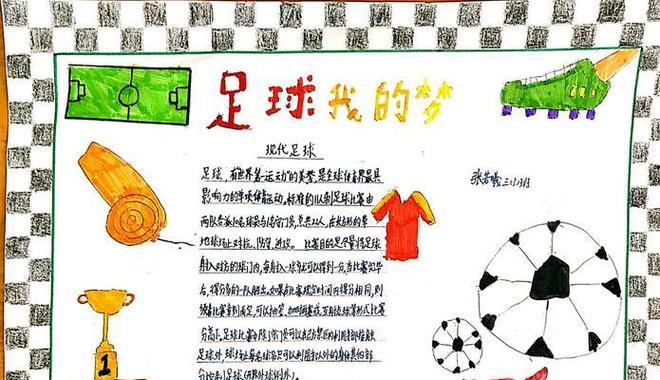 足球我的梦
现代足球
张若曦 三(1)班
足球,有"世界第一运动"的美誉,是全球体育界最具
影响力的单项体育运动,标准的11人制足球比赛由
两队各派10名球员与1名守门员,总共22人,在长方形的草
地球场上对抗、防守、进攻。比赛目的是尽量将足球
射入对方的球门内,每射入一球就可以得到一分,当比赛完毕
后,得分多的一队胜出,如果在比赛规定时间内得分相同,则
须看比赛章则而定,可以抽签、加时再赛或互射点球等形式比赛
分高下,足球比赛中除了守门员可以在己方禁区内利用手部接触
足球外,球场上每名球员只可以利用手以外的身体其他部
分控制足球(开界外球例外)。
1